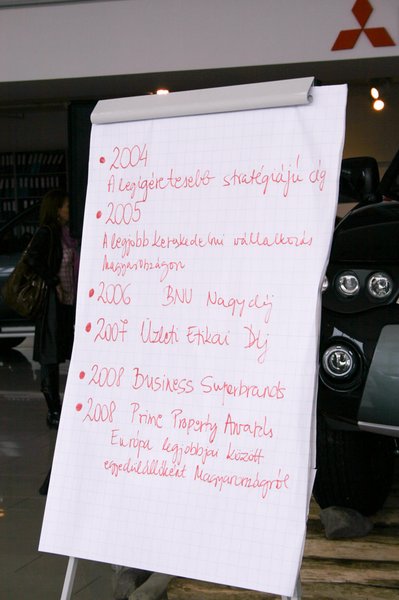 • 2004
A legígéretesebb stratégiájú cég
• 2005
A legjobb kereskedelmi vállalkozás
Magyarországon
• 2006 BNV Nagydíj
• 2007 Üzleti Etikai Díj
• 2008 Business Superbrands
• 2008 Prime Property Awards
Európa legjobbjai között
egyedülállóként Magyarországról